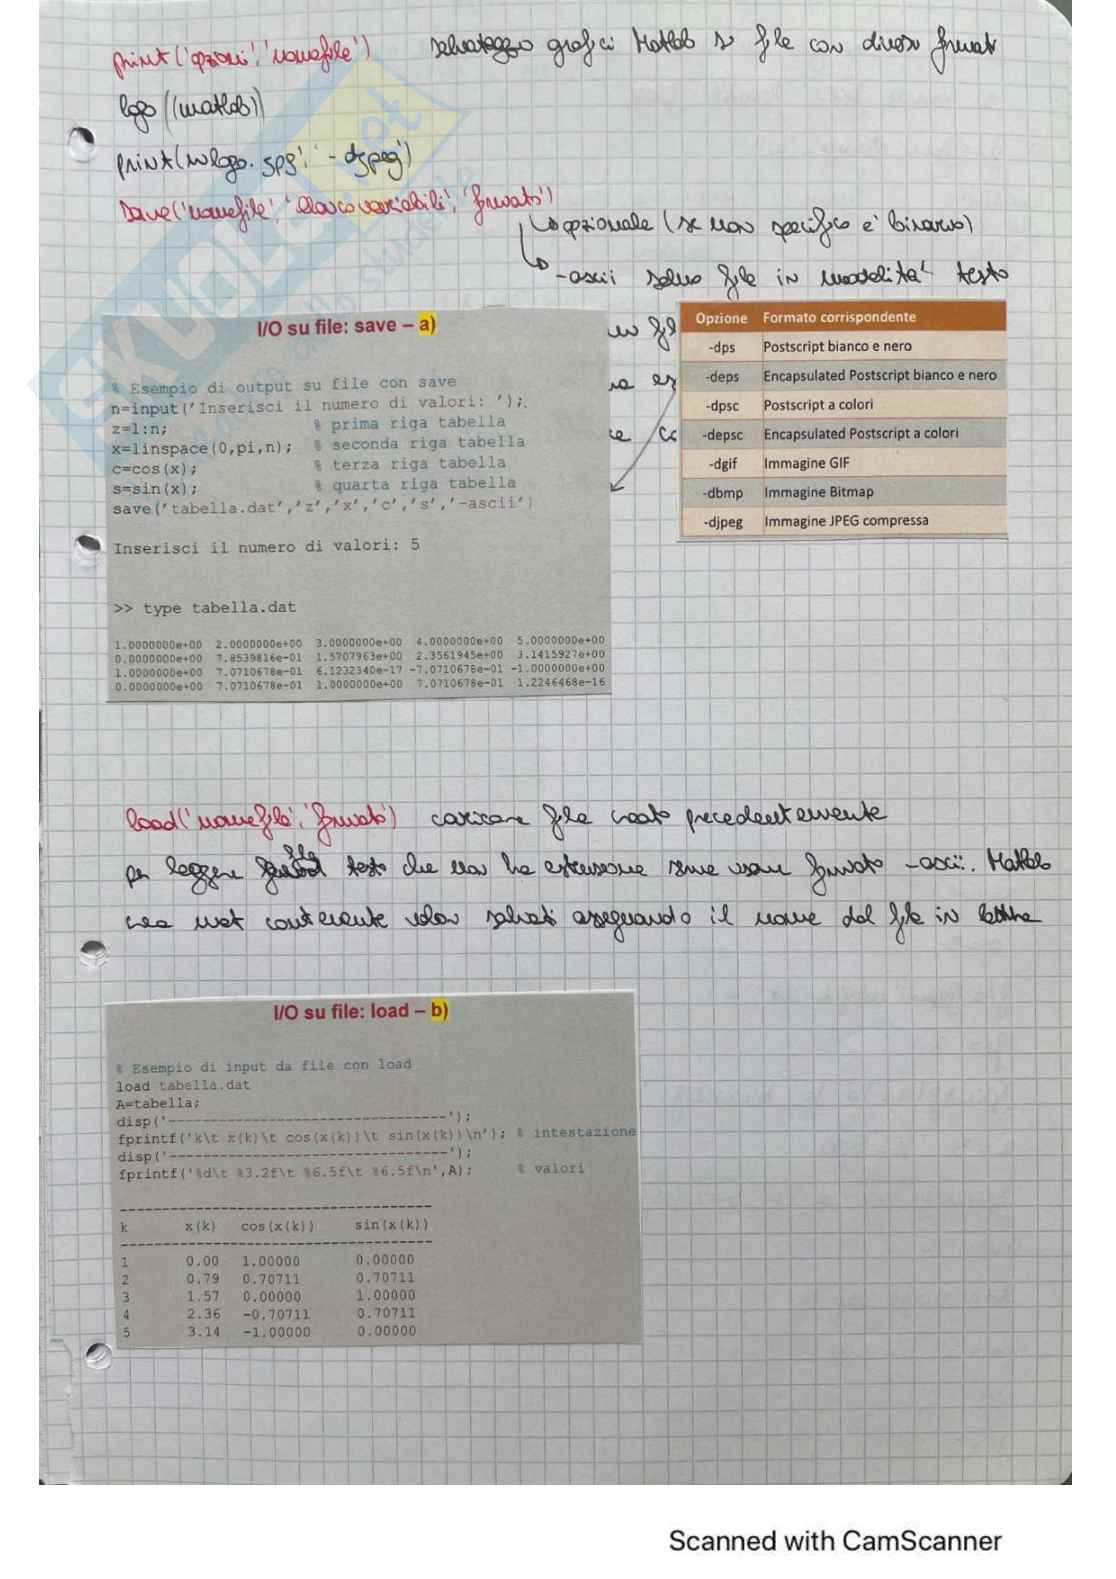 print('opzioni','nomefile') salvataggio grafici Matlab su file con diversi formati
logo ((matlab))
print( logo.jpg', '-djpeg')
Save('nomefile','elenco variabili','formato')
opzionale (se non specifico e' binario)
-ascii salvo file in modalità testo
I/O su file: save – a)
% Esempio di output su file con save
n=input('Inserisci il numero di valori: ');
z=1:n; % prima riga tabella
x=linspace(0,pi,n); % seconda riga tabella
c=cos(x); % terza riga tabella
s=sin(x); % quarta riga tabella
save('tabella.dat','z','x','c','s','-ascii')
Inserisci il numero di valori: 5
>> type tabella.dat
1.0000000e+00 2.0000000e+00 3.0000000e+00 4.0000000e+00 5.0000000e+00
0.0000000e+00 7.8539816e-01 1.5707963e+00 2.3561945e+00 3.1415927e+00
1.0000000e+00 7.0710678e-01 6.1232340e-17 -7.0710678e-01 -1.0000000e+00
0.0000000e+00 7.0710678e-01 1.0000000e+00 7.0710678e-01 1.2246468e-16
Opzione Formato corrispondente
-dps Postscript bianco e nero
-deps Encapsulated Postscript bianco e nero
-dpsc Postscript a colori
-depsc Encapsulated Postscript a colori
-dgif Immagine GIF
-dbmp Immagine Bitmap
-djpeg Immagine JPEG compressa
load('nomefile','formato') caricare file creato precedentemente
per leggere file testo che non ha estensione serve usare formato -ascii. Matlab
crea mat contenente valori salvati assegnando il nome del file in lettura
I/O su file: load – b)
% Esempio di input da file con load
load tabella.dat
A=tabella;
disp('-------------------------------');
fprintf('k\t x(k)\t cos(x(k))\t sin(x(k))\n'); % intestazione
disp('-------------------------------');
fprintf('%d\t %3.2f\t %6.5f\t %6.5f\n',A); % valori
-----------------------------------
k x(k) cos(x(k)) sin(x(k))
-----------------------------------
1 0.00 1.00000 0.00000
2 0.79 0.70711 0.70711
3 1.57 0.00000 1.00000
4 2.36 -0.70711 0.70711
5 3.14 -1.00000 0.00000
Scanned with CamScanner